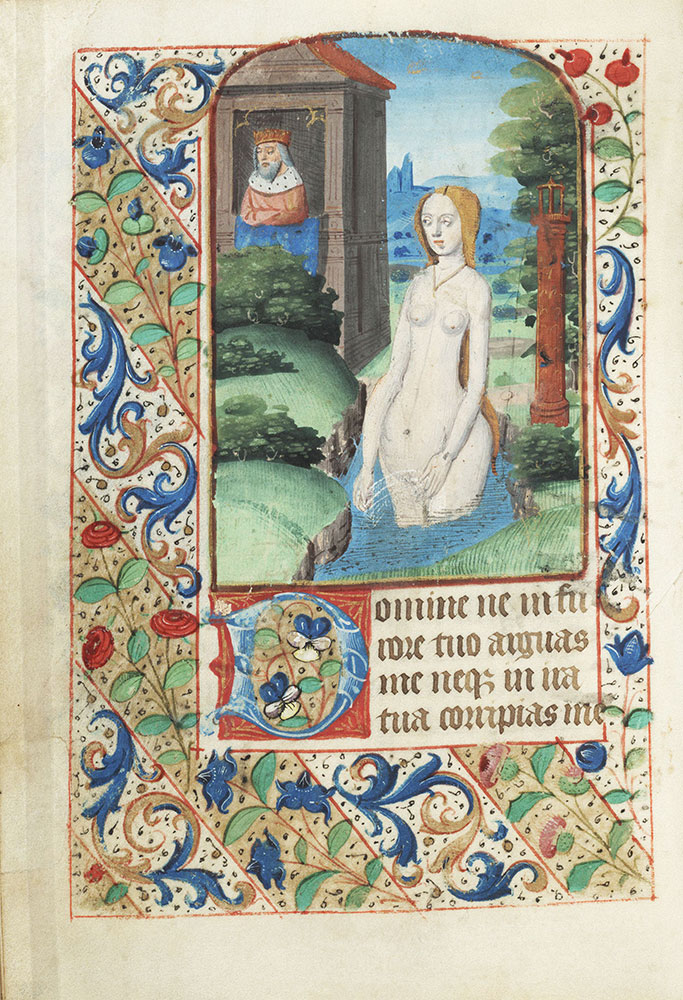 Domine ne in fu
rore tuo arguas
me neq3 in ira
tua corripias me